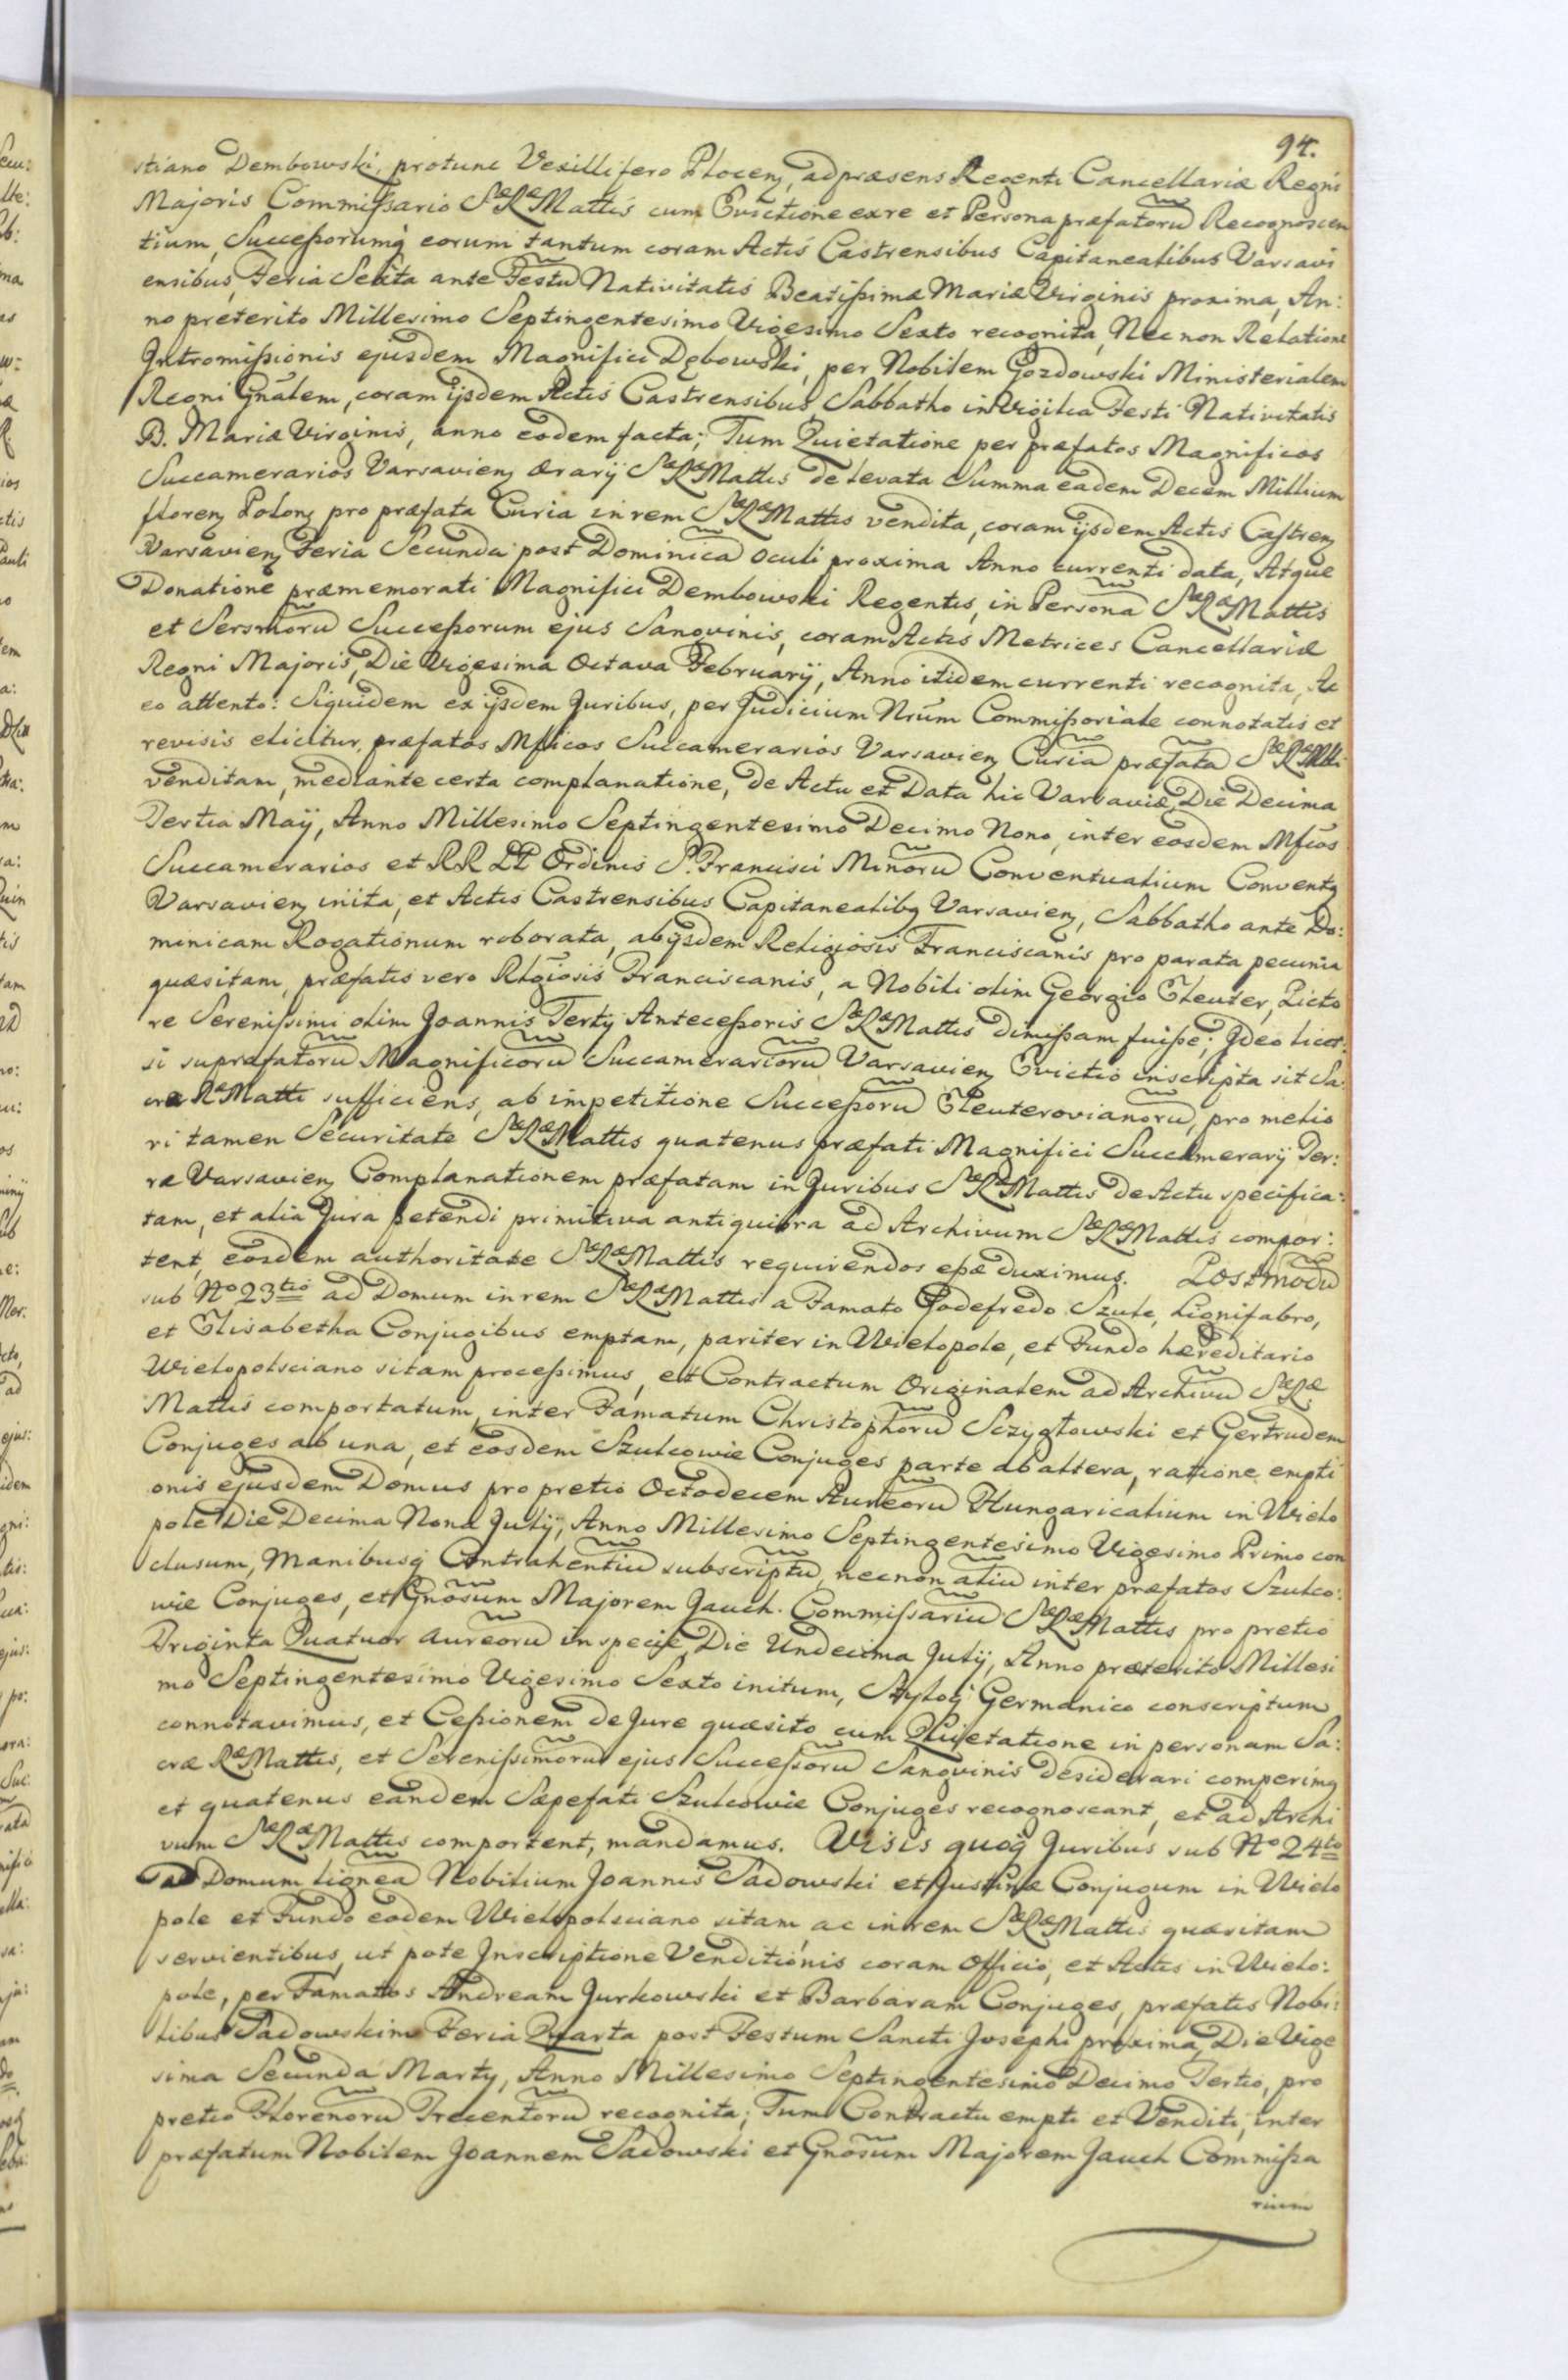 94.
stiano Dembowski, protunc Vexillifero Plocen, ad præsens Regenti Cancellariæ Regni
Majoris Commissario Sæ Ræ Mattis cum Evictione ex re et Persona præfatorũ Recognoscen
tium, Successorumq eorum tantum coram Actis Castrensibus Capitanealibus Varsavi
ensibus, Feria Sexta ante Festũ Nativitatis Beatissimæ Mariæ Virginis proxima, An:
no præterito Millesimo Septingentesimo Vigesimo Sexto recognita, Nec non Relatione
Intromissionis ejusdem Magnifici Dębowski, per Nobilem Gozdowski Ministerialem
Regni Gñalem, coram ijsdem Actis Castrensibus, Sabbatho in Vigilia Festi Nativitatis
B. Mariæ Virginis, anno eodem facta; Tum Quietatione per præfatos Magnificos
Succamerarios Varsavien Ærarij Sæ Ræ Mattis de levata Summa eadem Decem Millium
floren Polon pro præfata Curia in rem Sæ Ræ Mattis vendita, coram ijsdem Actis Castren
Varsavien Feria Secunda post Dominicã Oculi proxima Anno currenti data, Atque
Donatione præmemorati Magnifici Dembowski Regentis, in Personã Sæ Ræ Mattis
et Sersmorũ Successorum ejus Sangvinis, coram Actis Metrices Cancellariæ
Regni Majoris, Die Vigesima Octava February, Anno itidem currenti recognita, Ac
eo attento: Siquidem ex ijsdem Juribus, per Judicium Nrũm Commissoriale connotatis et
revisis elicitur, præfatos Mficos Succamerarios Varsavien Curiã præfatã Sæ Ræ Mtti
venditam, mediante certa complanatione, de Actu et Data hic Varsaviæ, Die Decima
Tertia Maÿ, Anno Millesimo Septingentesimo Decimo Nono, inter eosdem Mficos
Succamerarios et RR PP Ordinis S. Francisci Minorũ Conventualium Conventq
Varsavien inita, et Actis Castrensibus Capitanealibq Varsavien, Sabbatho ante Do:
minicam Rogationum roborata, ab ijsdem Religiosis Franciscanis pro parata pecunia
quæsitam, præfatis vero Rlgiosis Franciscanis, a Nobili olim Georgio Eleuter, Picto
re Serenissimi olim Joannis Tertij Antecessoris Sæ Ræ Mattis dimissam fuisse; Ideo licet:
si supræfatorũ Magnificorũ Succamerariorũ Varsavien Evictio inscripta sit Sa:
cræ Ræ Matti sufficiens, ab impetitione Successorũ Eleuterovianorũ, pro melio
ri tamen Securitate Sæ Ræ Mattis quatenus præfati Magnifici Succamerarij Ter:
ræ Varsavien Complanationem præfatam in Juribus Sæ Ræ Mattis de Actu specifica:
tam, et alia Jura petendi primitiva antiquiora ad Archivum Sæ Ræ Mattis compor:
tent, eosdem authoritate Sæ Ræ Mattis requirendos esse duximus. Postmodũ
sub No 23tio ad Domum in rem Sæ Ræ Mattis a Famato Godefredo Szulc, Lignifabro,
et Elisabetha Conjugibus emptam, pariter in Wielopole, et Fundo hæreditario
Wielopolsciano sitam processimus, et Contractum Originalem ad Archivũ Sæ Ræ
Mattis comportatum, inter Famatum Christophorũ Sczygłowski et Gertrudem
Conjuges ab una, et eosdem Szulcowie Conjuges parte ab altera, ratione empti
onis ejusdem Domus pro pretio Octodecem Aureorũ Hungaricalium in Wielo
pole Die Decima Nona Julij, Anno Millesimo Septingentesimo Vigesimo Primo con
clusum, Manibusq Contrahentiũ subscriptũ, necnon aliũ inter præfatos Szulco:
wie Conjuges, et Gñosum Majorem Jauch. Commissariũ Sæ Ræ Mattis pro pretio
Triginta Quatuor aureorũ in specie, Die Undecima Julij, Anno præterito Millesi
mo Septingentesimo Vigesimo Sexto initum, Styloq Germanico conscriptum
connotavimus, et Cessionem de Jure quæsito cum Quietatione in personam Sa:
cræ Ræ Mattis, et Serenissimorũ ejus Successorũ Sangvinis desiderari comperimq
et quatenus eandem Sæpefati Szulcowie Conjuges recognoscant, et ad Archi
vum Sæ Ræ Mattis comportent, mandamus. Visis quoq Juribus sub No 24to
ad Domum ligneã Nobilium Joannis Sadowski et Justinæ Conjugum in Wielo
pole et Fundo eodem Wielopolsciano sitam, ac in rem Sæ Ræ Mattis quæsitam
servientibus, ut pote Inscriptione Venditionis coram Officio, et Actis in Wielo:
pole, per Famatos Andream Jurkowski et Barbaram Conjuges, præfatis Nobi:
libus Sadowskim Feria Quarta post Festum Sancti Josephi proxima, Die Vige
sima Secunda Marty, Anno Millesimo Septingentesimo Decimo Tertio, pro
pretio Florenorũ Trecentorũ recognita; Tum Contractu empti et Venditi, inter
præfatum Nobilem Joannem Sadowski et Gñosum Majorem Jauch Commissa
rium